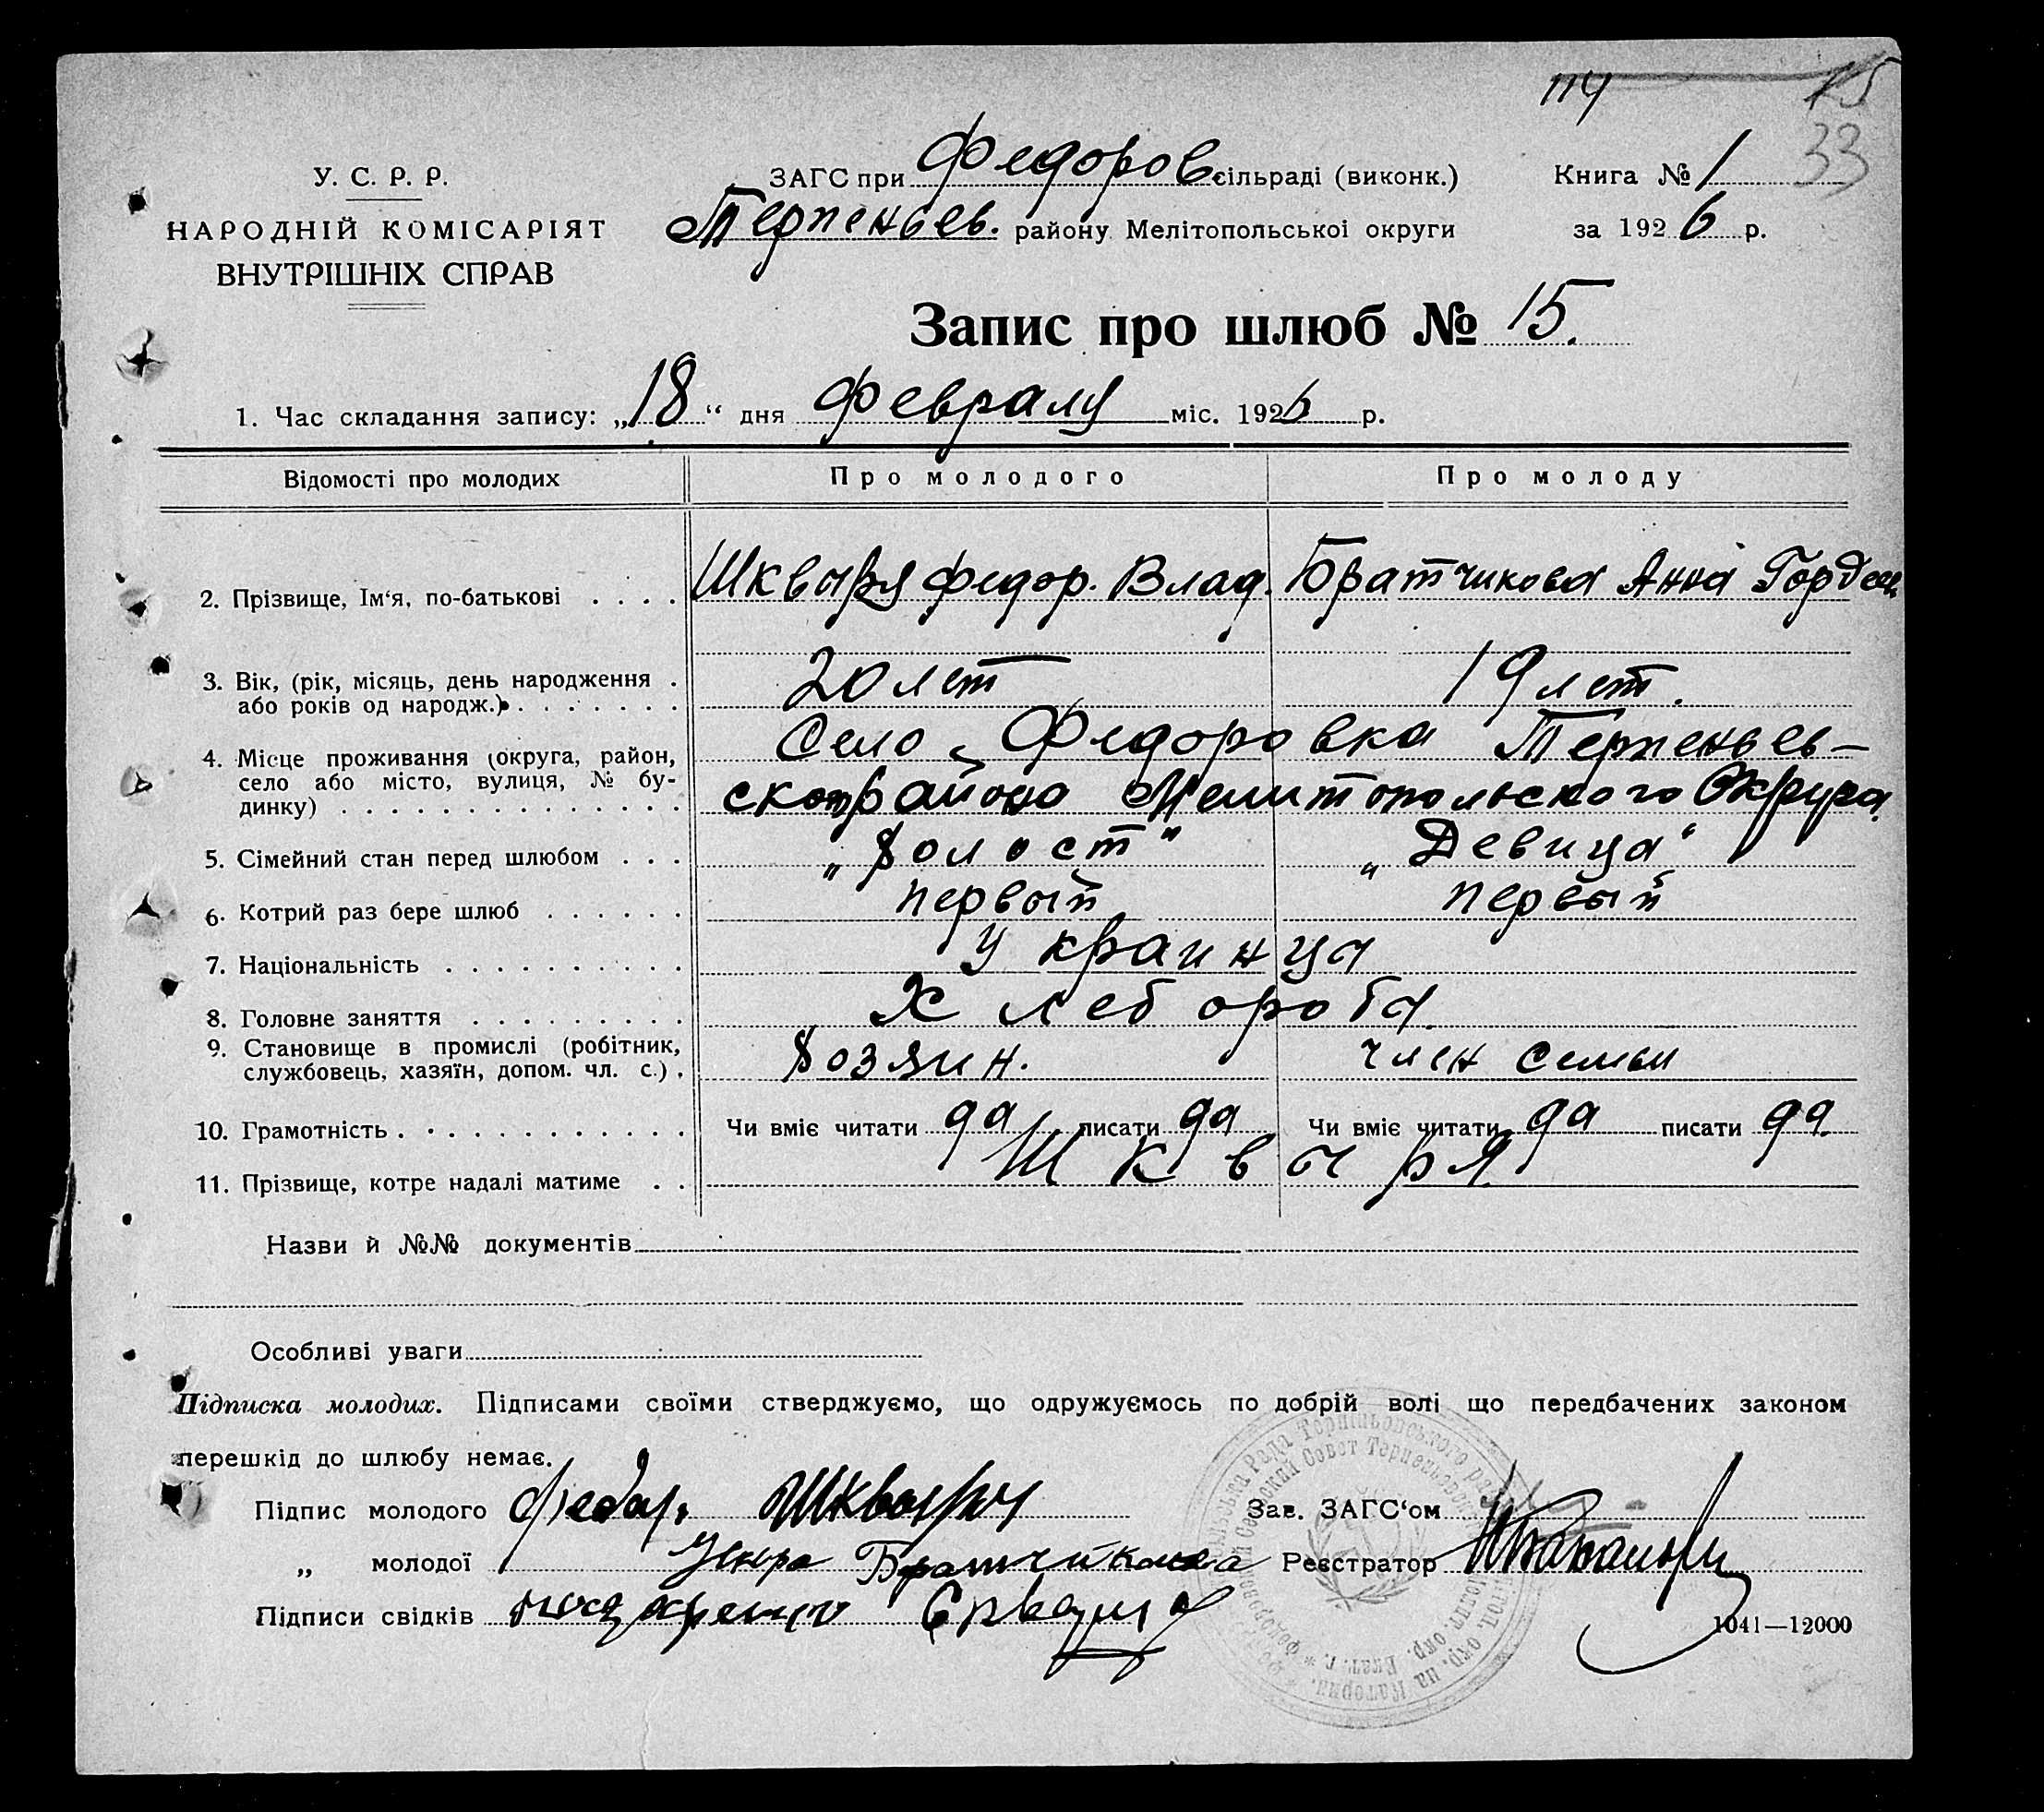 114 15
33
У. С. Р. Р.
НАРОДНІЙ КОМІСАРІЯТ
ВНУТРІШНІХ СПРАВ
ЗАГС при Федоров. сільраді (виконк.)
Терпеньев. району Мелітопольської округи
Книга № 1
за 1926 р.
Запис про шлюб № 15.
1. Час складання запису: „18“ дня Февраля міс. 1926 р.
Відомості про молодих Про молодого Про молоду
2. Прізвище, Ім‘я, по-батькові . . . . Шквыря Федор. Влад. Братчикова Анна Гордеи.
3. Вік, (рік, місяць, день народження . 20 лет 19 лет.
або років од народж.) . . . . . . .
4. Місце проживання (округа, район, Село Федоровка Терпеньев-
село або місто, вулиця, № бу- ског района Мелитопольского Округа.
динку) . . . . . . . . . . . . . .
5. Сімейний стан перед шлюбом . . . „Холост" „Девица"
6. Котрий раз бере шлюб . . . . . . первый первый
7. Національність . . . . . . . . . . украинцы
8. Головне заняття . . . . . . . . . Хлеборобы
9. Становище в промислі (робітник, Хозяин. член семьи
службовець, хазяїн, допом. чл. с.) .
10. Грамотність . . . . . . . . . . . Чи вміє читати да писати да Чи вміє читати да писати да
11. Прізвище, котре надалі матиме . . Шквыря
Назви й №№ документів
Особливі уваги
Підписка молодих. Підписами своїми стверджуємо, що одружуємось по добрій волі що передбачених законом
перешкід до шлюбу немає.
Підпис молодого Федор. Шквыря Зав. ЗАГС‘ом
„ молодої Братчикова Реєстратор
Підписи свідків
1041—12000